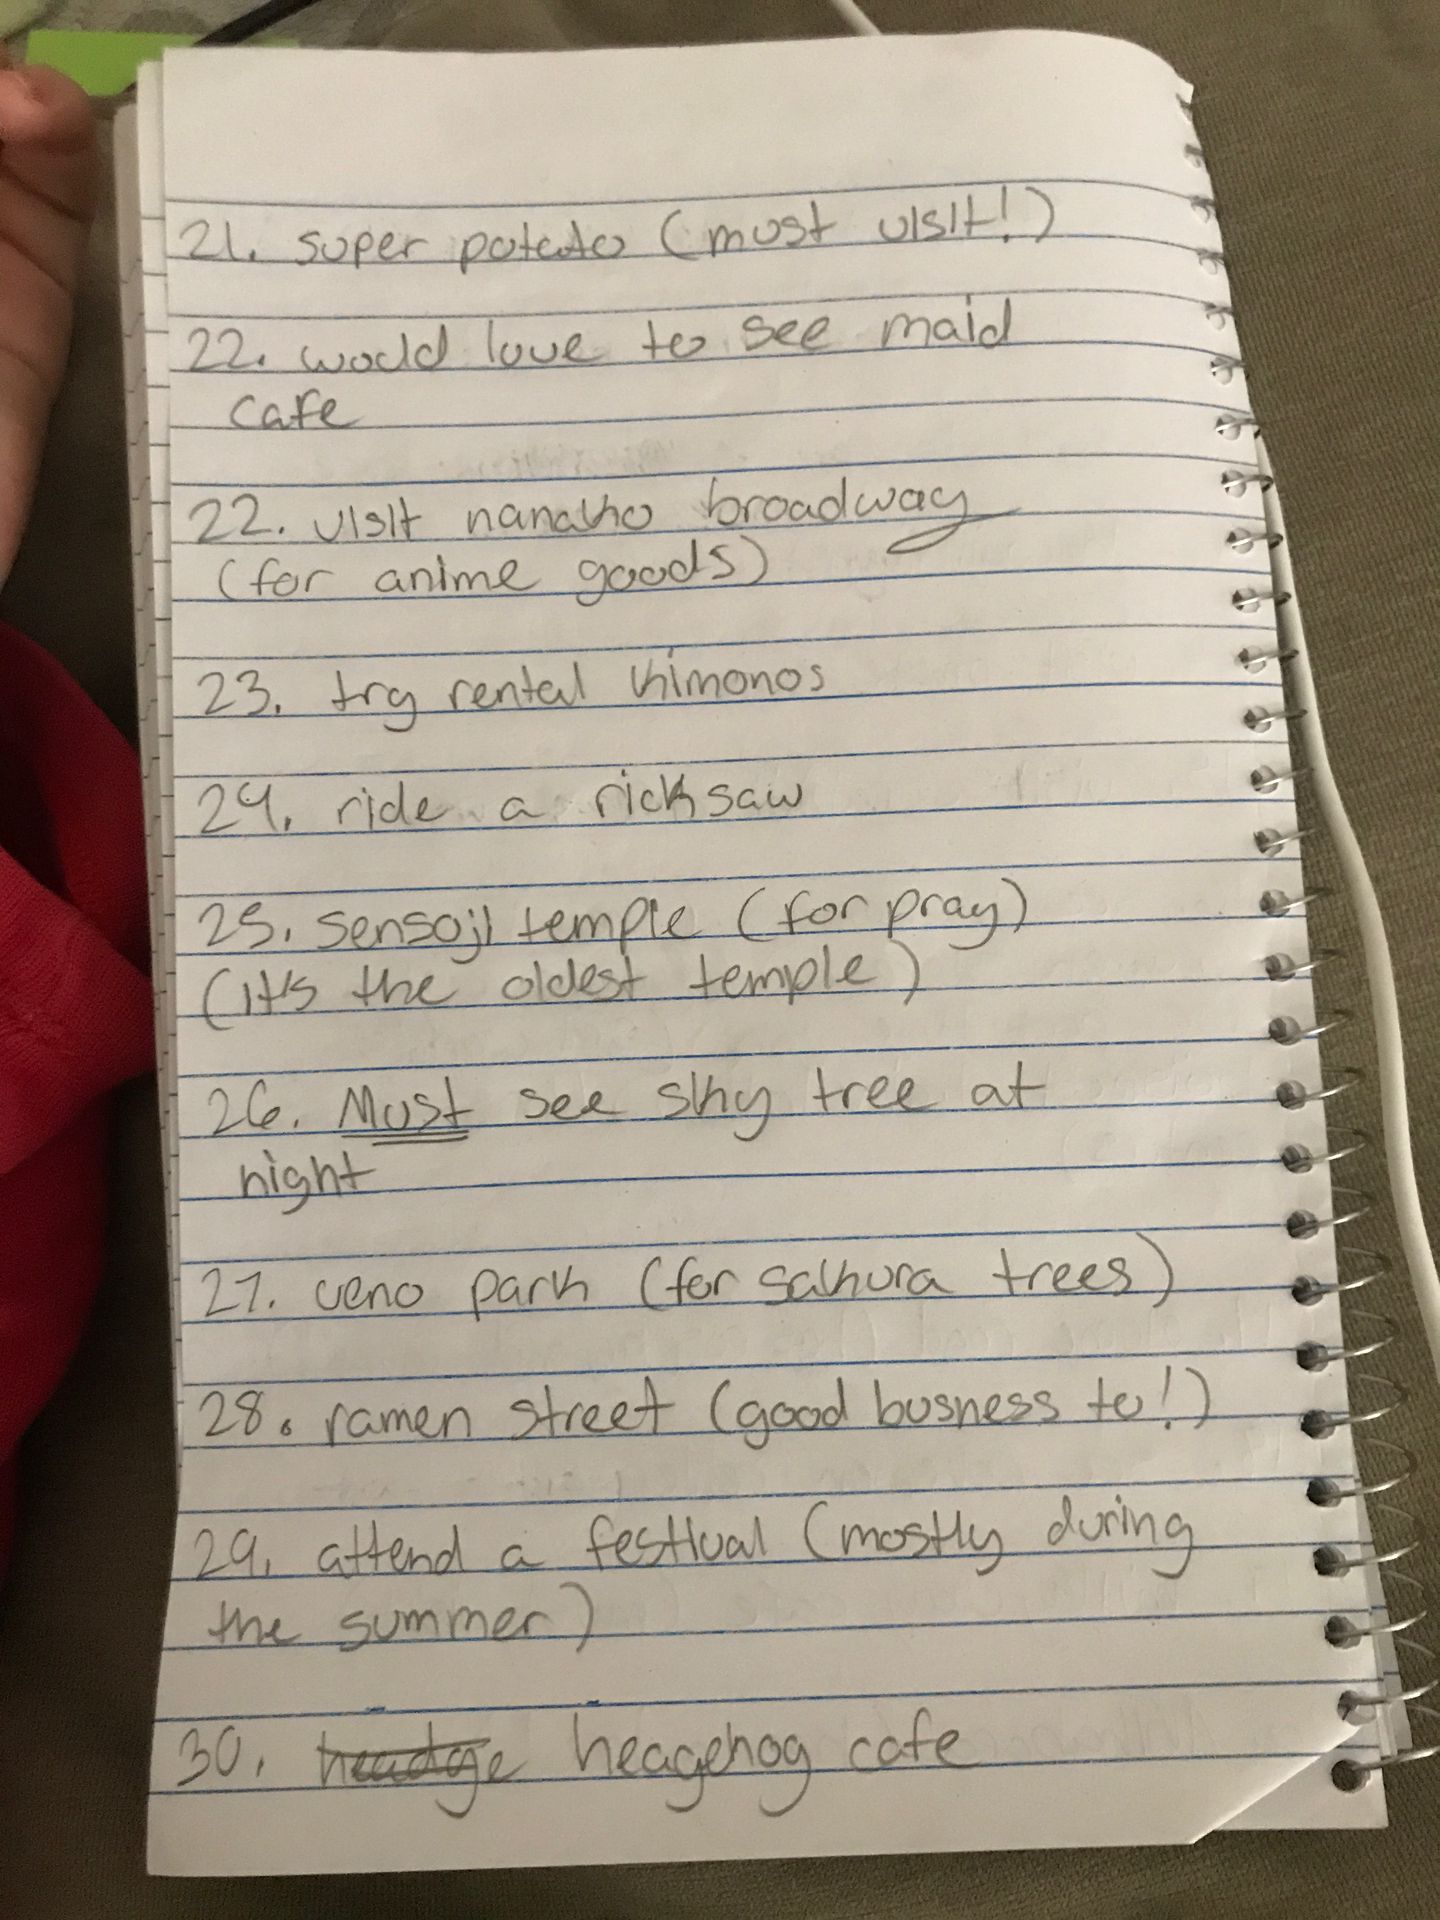 21. super potato (must visit!)
22. would love to see maid
cafe
22. visit nanakno broadway
(for anime goods)
23. try rental kimonos
24. ride a ricksaw
25. sensoji temple (for pray)
(it's the oldest temple)
26. Must see sky tree at
night
27. ueno park (for sakura trees)
28. ramen street (good busness to!)
29. attend a festival (mostly during
the summer)
30. headge heagehog cafe